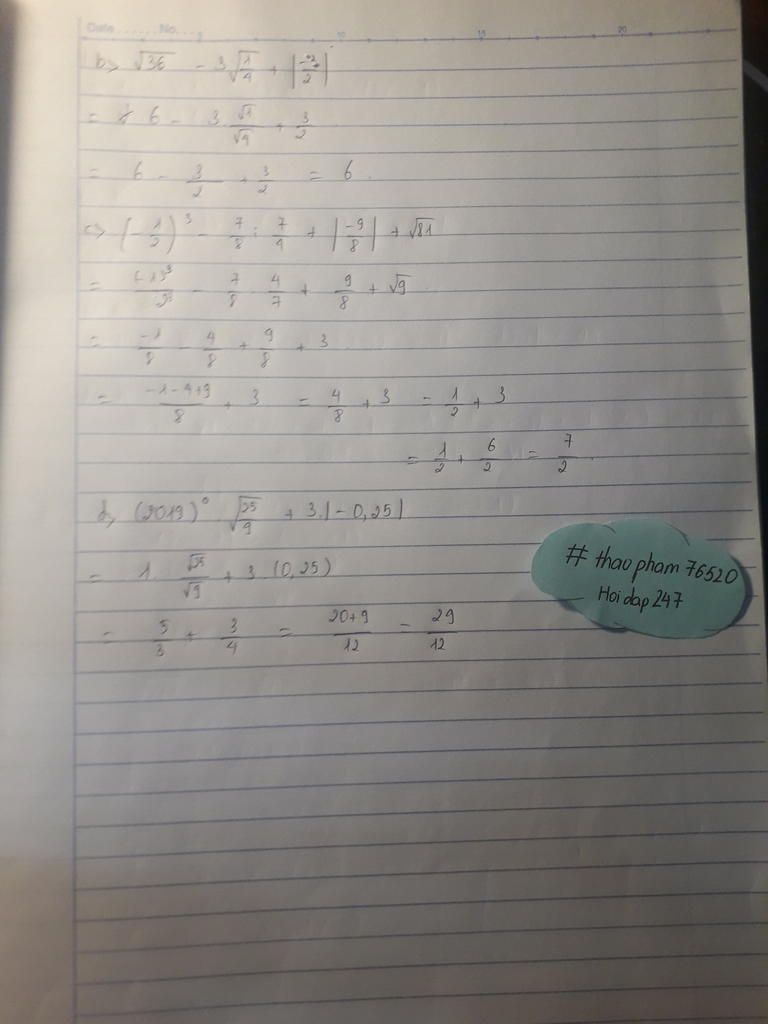 Date ...... No. ...
5 10 15 20
b> √36 - 3√(1/4) + |-3/2|
= 6 - 3 √1/√4 + 3/2
= 6 - 3/2 + 3/2 = 6.
c> (-1/2)³ - 7/8 : 7/4 + |-9/8| + √81
= (-1)³/2³ - 7/8 . 4/7 + 9/8 + √9
= -1/8 - 4/8 + 9/8 + 3
= (-1-4+9)/8 + 3 = 4/8 + 3 = 1/2 + 3
= 1/2 + 6/2 = 7/2.
d> (2019)⁰ . √(25/9) + 3.|-0,25|
= 1. √25/√9 + 3.(0,25)
= 5/3 + 3/4 = (20+9)/12 = 29/12
# thaopham76520
Hoidap247